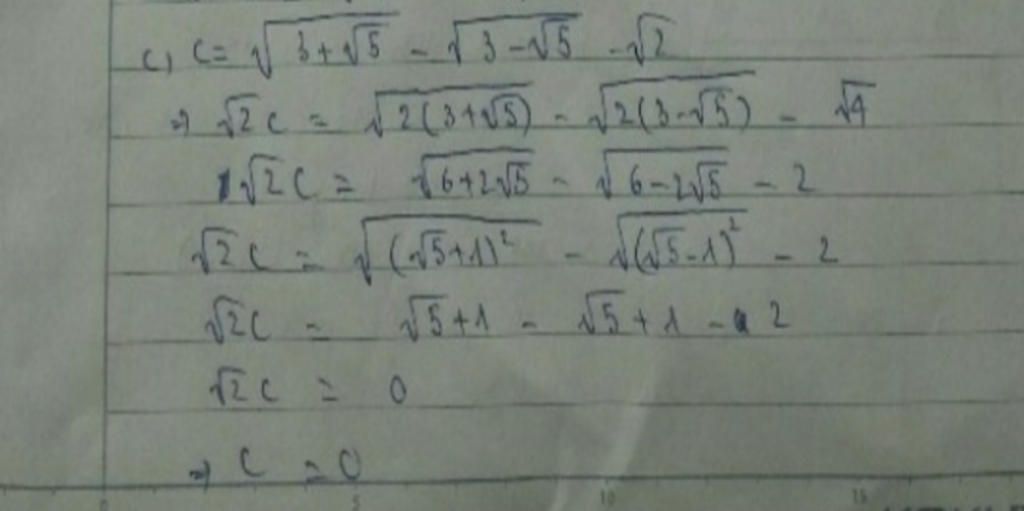 c, C = √(3+√5) - √(3-√5) - √2
=> √2C = √(2(3+√5)) - √(2(3-√5)) - √4
√2C = √(6+2√5) - √(6-2√5) - 2
√2C = √((√5+1)²) - √((√5-1)²) - 2
√2C = √5+1 - √5+1 - 2
√2C = 0
=> C = 0
5 10 15